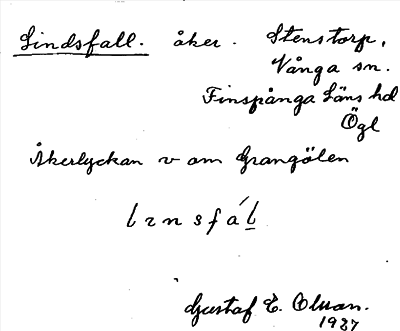 Lindsfall. åker. Stenstorp,
Vånga sn.
Finspånga Läns hd
Ögl
Åkerlyckan v om Grangölen
Gustaf E. Olsson.
1927